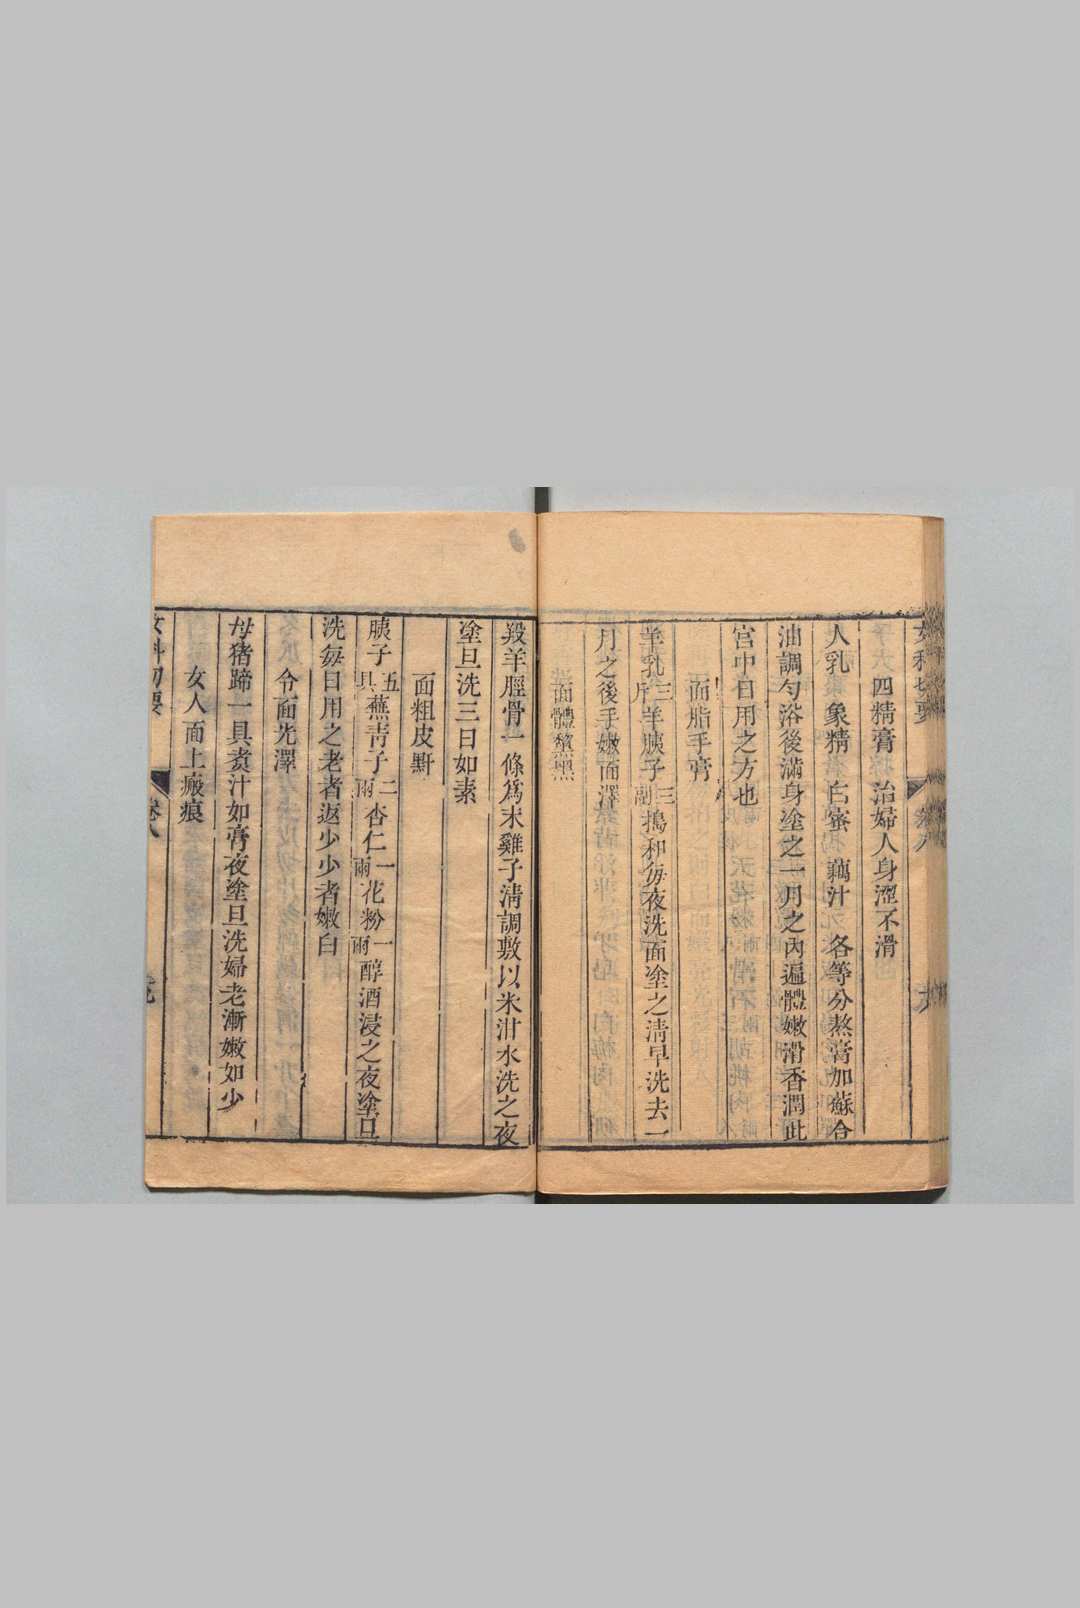 四精膏 治婦人身澀不滑
人乳 象精 白蜜 藕汁 各等分熬膏加蘇合
油調勻浴後滿身塗之一月之內遍體嫩滑香潤此
宮中日用之方也
面脂手膏
羊乳三斤羊胰子三副搗和每夜洗面塗之清早洗去一
月之後手嫩面澤
面體黧黑
羖羊脛骨一條爲末雞子清調敷以米泔水洗之夜
塗旦洗三日如素
面粗皮䵟
胰子五具蕪青子二兩杏仁一兩花粉一兩醇酒浸之夜塗旦
洗每日用之老者返少少者嫩白
令面光澤
母猪蹄一具煑汁如膏夜塗旦洗婦老漸嫩如少
女人面上瘢痕
女科切要
卷八